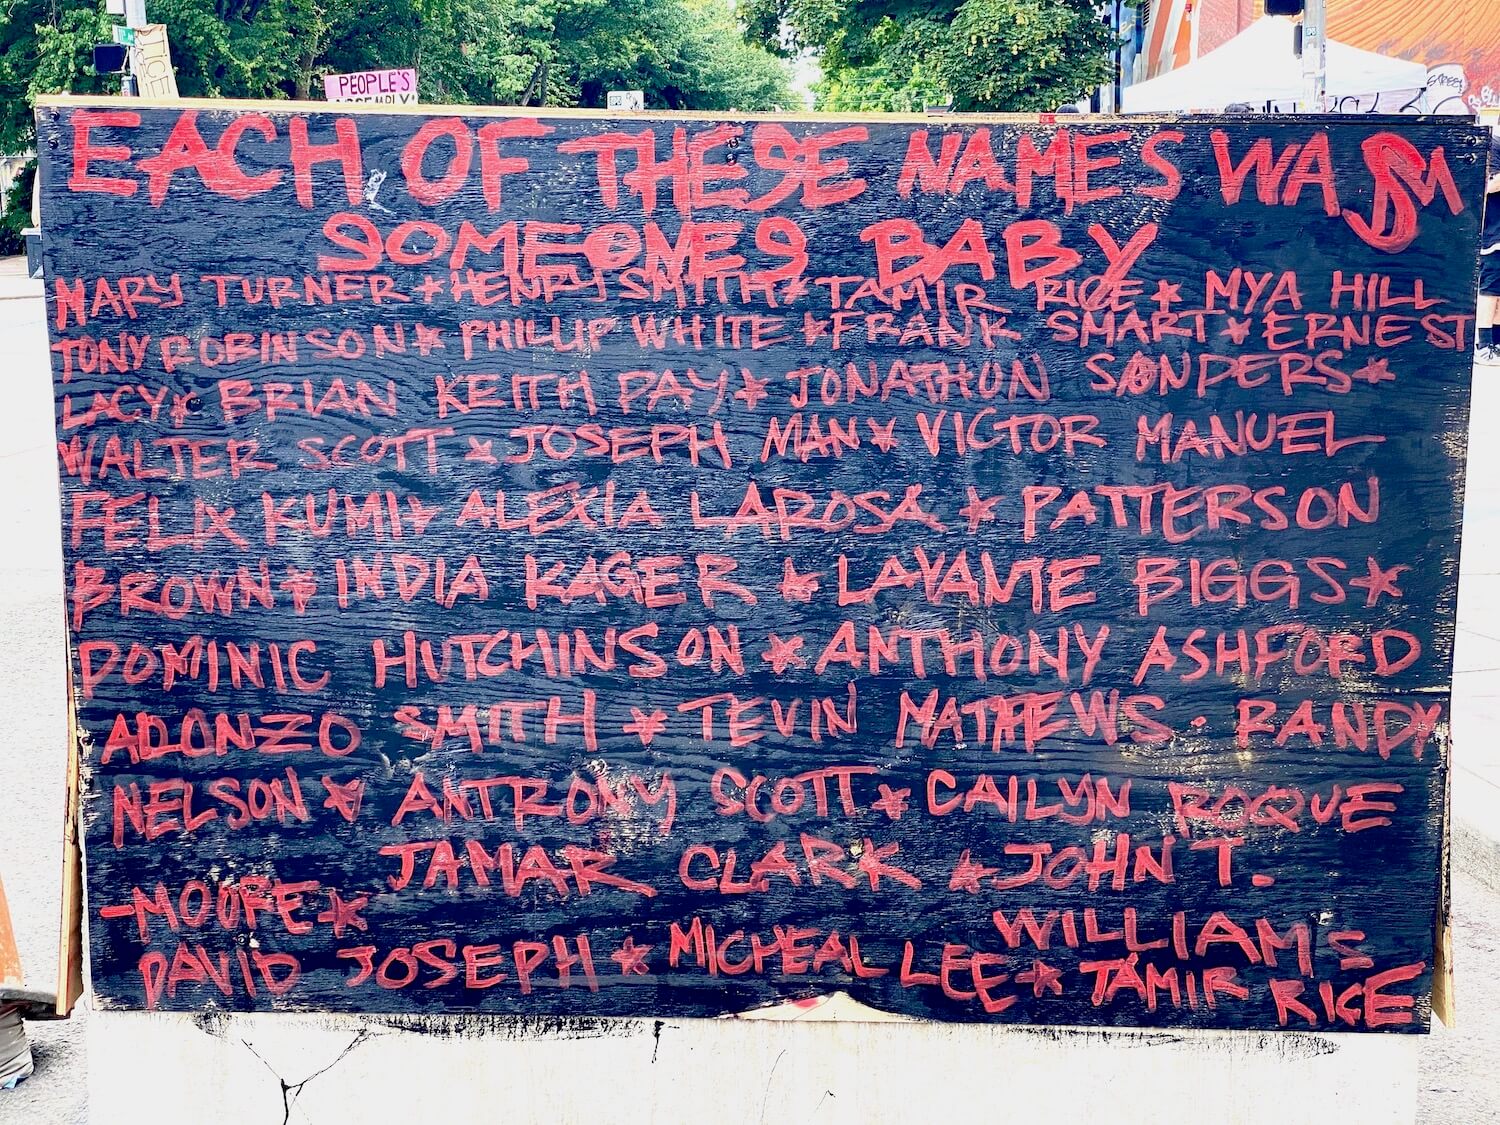 PEOPLE'S
ASSEMBLY!
EACH OF THESE NAMES WAS
SOMEONES BABY
MARY TURNER * HENRY SMITH * TAMIR RICE * MYA HILL
TONY ROBINSON * PHILLIP WHITE * FRANK SMART * ERNEST
LACY * BRIAN KEITH DAY * JONATHON SANDERS *
WALTER SCOTT * JOSEPH MAN * VICTOR MANUEL
FELIX KUMI * ALEXIA LAROSA * PATTERSON
BROWN * INDIA KAGER * LAVANTE BIGGS *
DOMINIC HUTCHINSON * ANTHONY ASHFORD
ALONZO SMITH * TEVIN MATHEWS · RANDY
NELSON * ANTRONY SCOTT * CAILYN ROQUE
JAMAR CLARK * JOHN T.
-MOORE * WILLIAMS
DAVID JOSEPH * MICHEAL LEE * TAMIR RICE